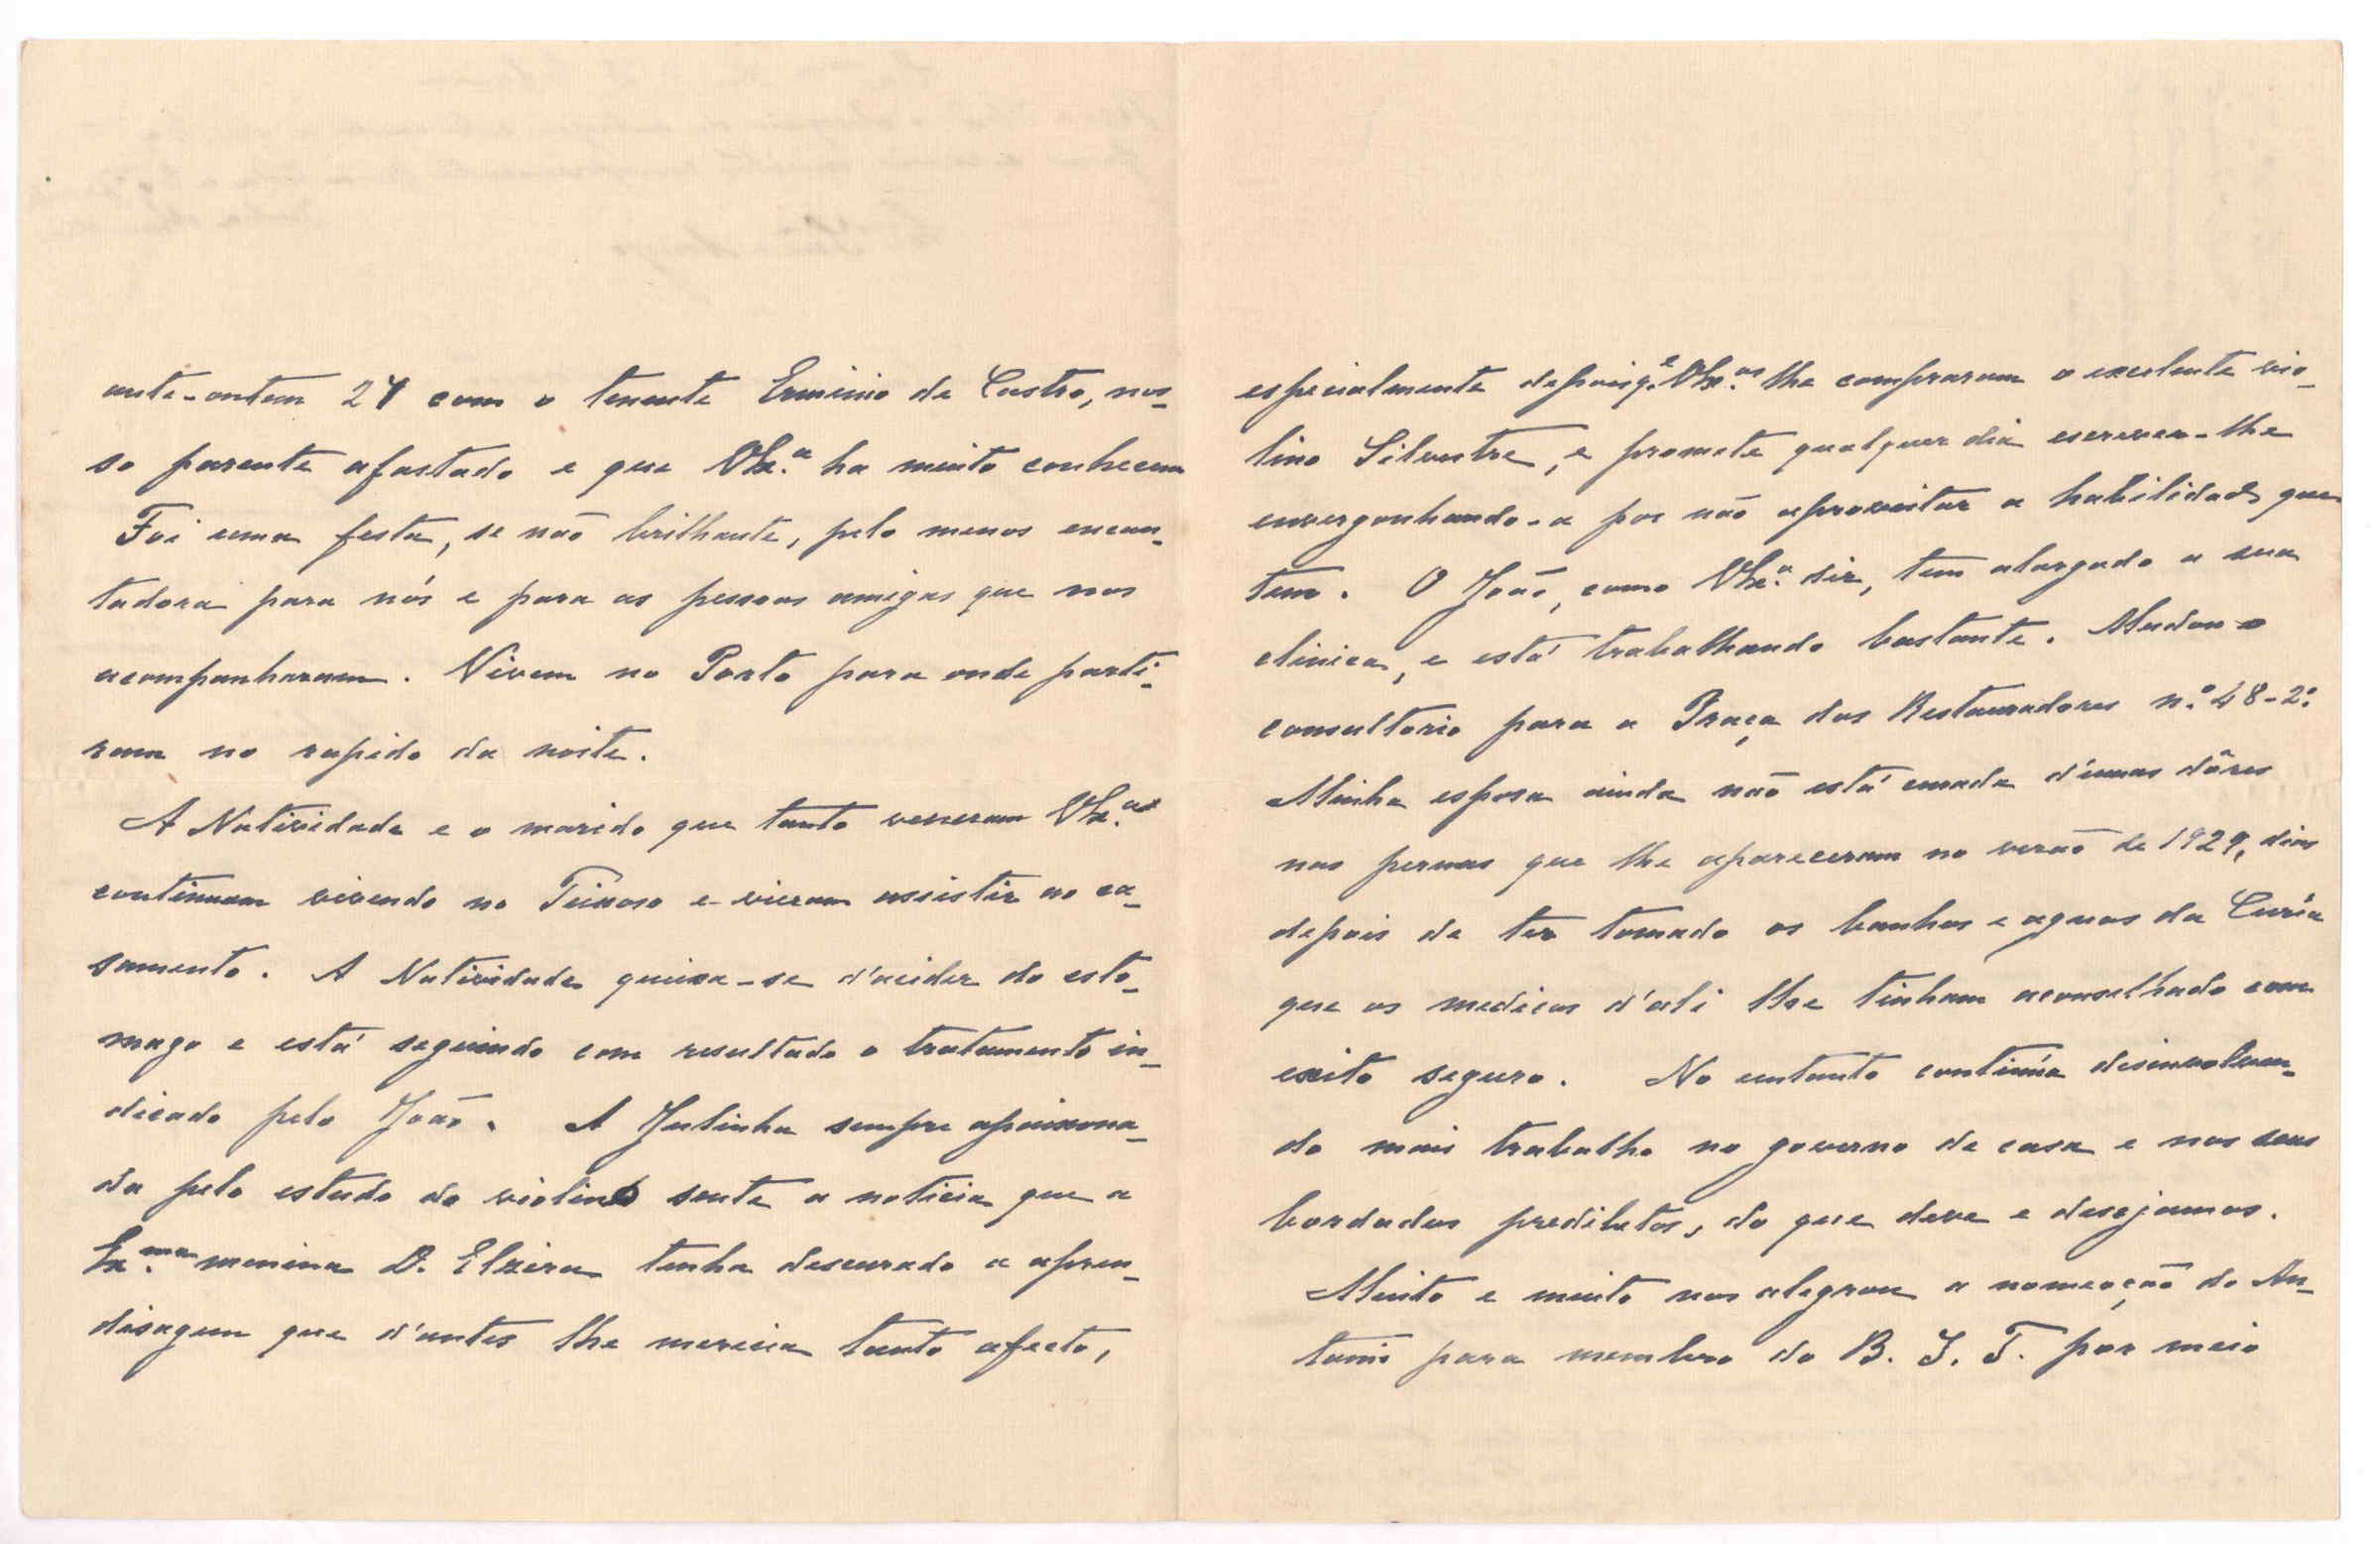 ante-ontem 24 com o tenente Erminio de Castro, nos-
so parente afastado e que VEx.ª ha muito conhecem
Foi uma festa, se não brilhante, pelo menos encan-
tadora para nós e para as pessoas amigas que nos
acompanharam. Vivem no Porto para onde parti-
ram no rapido da noite.
A Natividade e o marido que tanto veneram VEx.as
continuam vivendo no Teixoso e vieram assistir ao ca-
samento. A Natividade queixa-se d'acidez do esto-
mago e está seguindo com resultado o tratamento in-
dicado pelo João. A Julinha sempre apaixona-
da pelo estudo do violino sente a noticia que a
Ex.ma menina D. Elzira tenha descurado a apren-
disagem que d'antes lhe merecia tanto afecto,
especialmente depois q.e VEx.as lhe compraram o excelente vio-
lino Silvestre, e promete qualquer dia escrever-lhe
envergonhando-a por não aproveitar a habilidade que
tem. O João, como VEx.ª diz, tem alargado a sua
clinica, e está trabalhando bastante. Mudou o
consultorio para a Praça dos Restauradores n.º 48-2.º
Minha esposa ainda não está curada d'umas dôres
nas pernas que lhe apareceram no verão de 1929, dias
depois de ter tomado os banhos e aguas da Curía
que os medicos d'ali lhe tinham aconselhado com
exito seguro. No entanto continúa desinvolven-
do mais trabalho no governo de casa e nos seus
bordados prediletos, do que deve e desejamos.
Muito e muito nos alegrou a nomeação do An-
tonio para membro do B. I. T. por meio